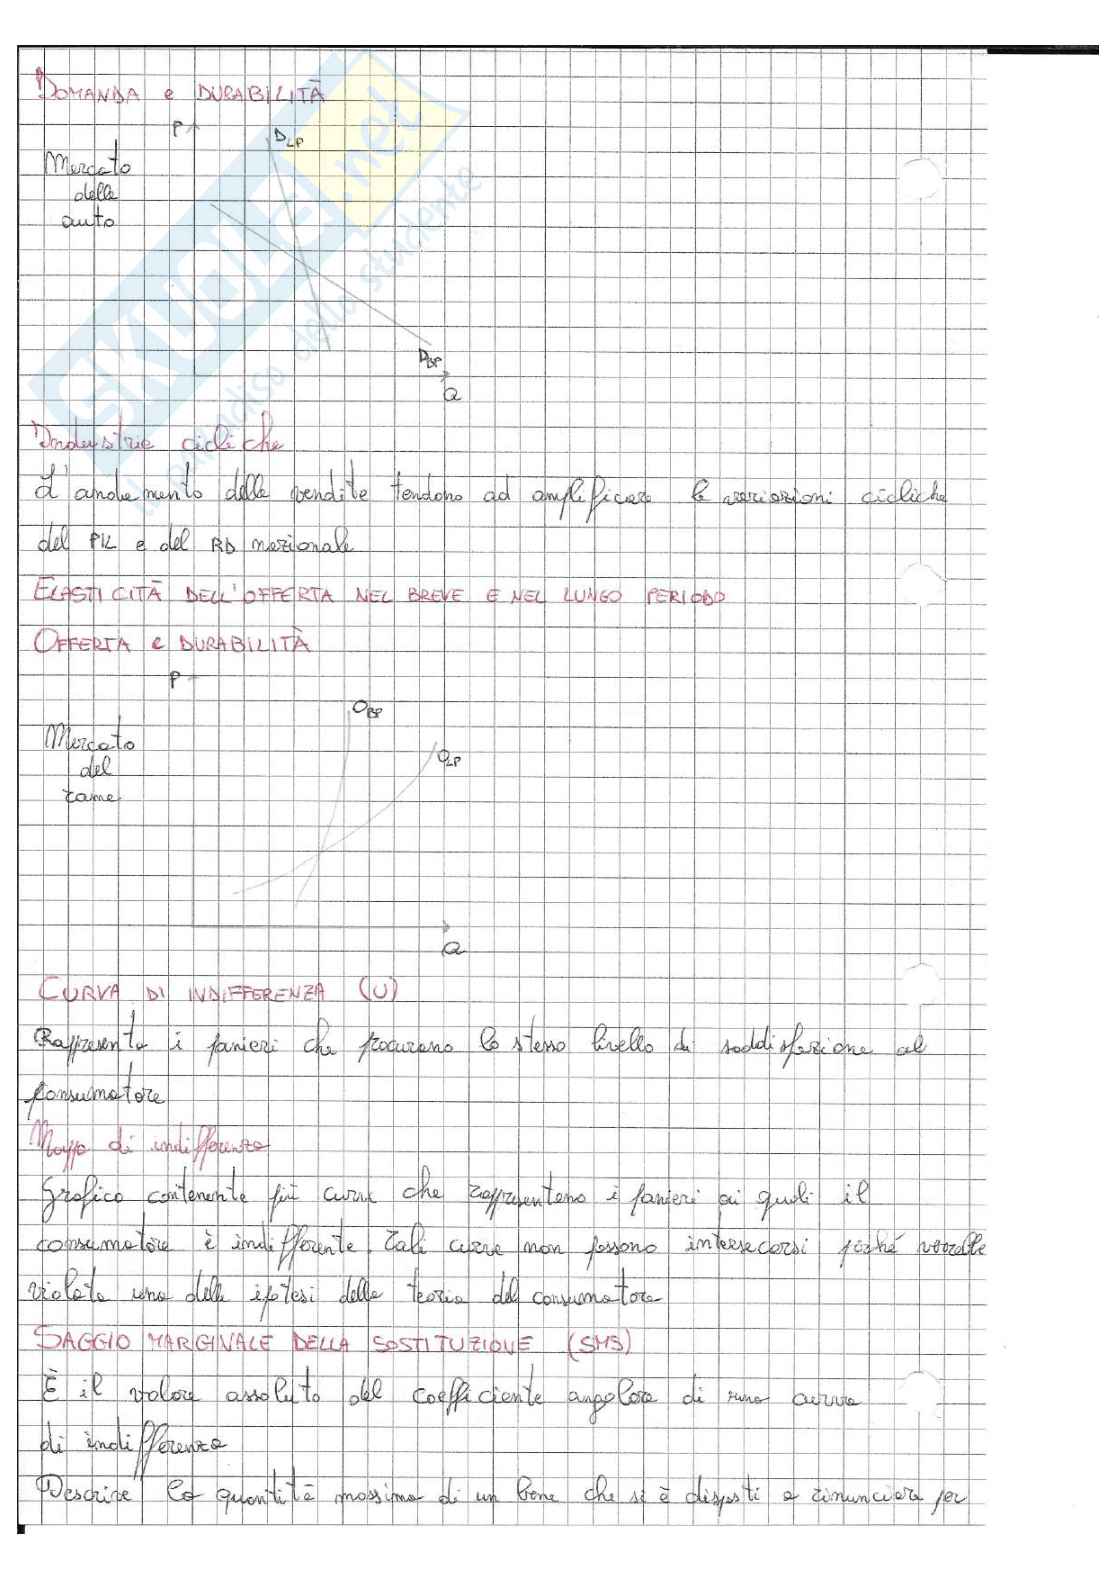 DOMANDA e DURABILITÀ
P
D LP
Mercato
delle
auto
D BP
Q
Industrie cicliche
L'andamento delle vendite tendono ad amplificare le variazioni cicliche
del PIL e del RD nazionale
ELASTICITÀ DELL'OFFERTA NEL BREVE E NEL LUNGO PERIODO
OFFERTA e DURABILITÀ
P
O BP
Mercato
del
rame
O LP
Q
CURVA DI INDIFFERENZA (U)
Rappresenta i panieri che procurano lo stesso livello di soddisfazione al
consumatore
Mappa di indifferenza
Grafico contenente più curve che rappresentano i panieri ai quali il
consumatore è indifferente. Tali curve non possono intersecarsi perché verrebbe
violata una delle ipotesi della teoria del consumatore
SAGGIO MARGINALE DELLA SOSTITUZIONE (SMS)
È il valore assoluto del coefficiente angolare di una curva
di indifferenza
Descrive la quantità massima di un bene che si è disposti a rinunciare per
SKUOLA.net
il paradiso dello studente